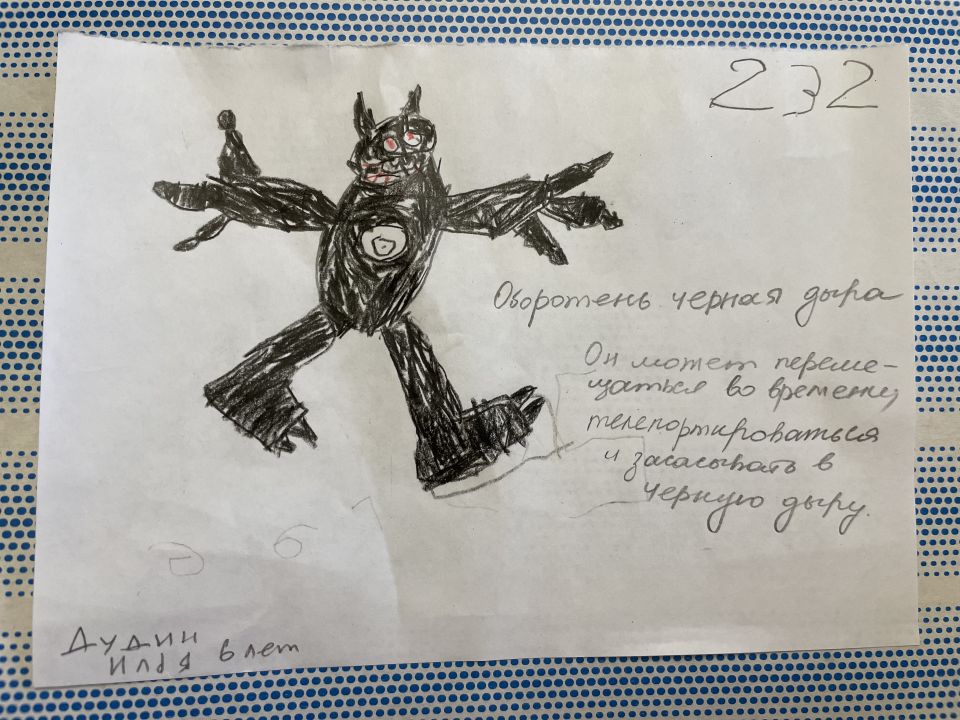 232
Оборотень черная дыра
Он может переме-
щаться во времени,
телепортироваться
и засасывать в
черную дыру.
Дудин
Илья 6 лет